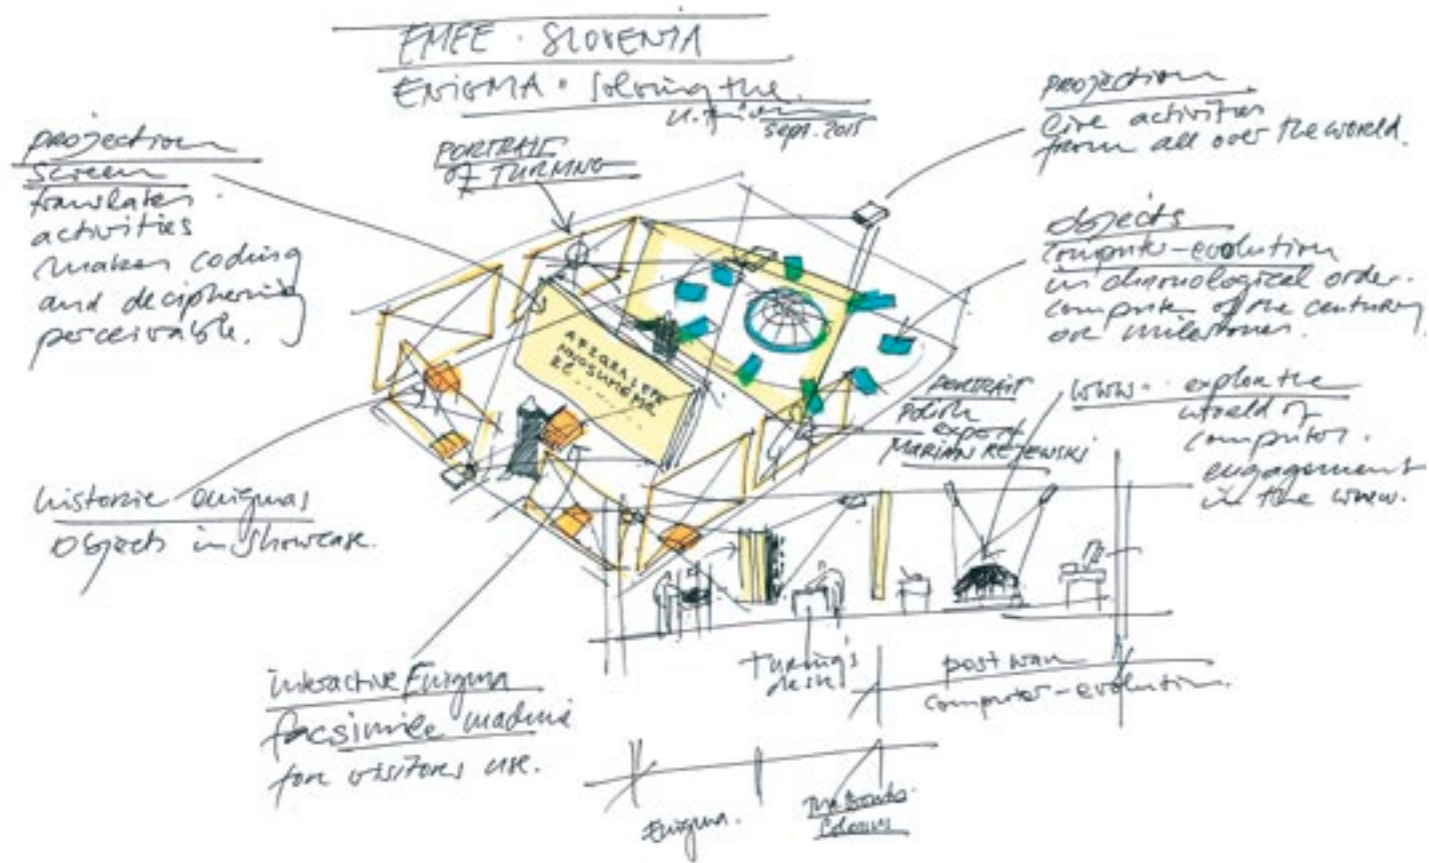 EMEE · SLOVENIA
ENIGMA · Solving the
sept. 2015
projection
screen
translates
activities
makes coding
and deciphering
perceivable.
PORTRAIT
of TURING
PROJECTION
live activities
from all over the world.
objects
computer-evolution
in chronological order.
computer of the century
or milestones.
PORTRAIT
Polish
expert
MARIAN REJEWSKI
www. explore the
world of
computer.
engagement
in the www.
historic enigmas
objects in showcase.
interactive Enigma
facsimile machine
for visitors use.
Turing's
desk
post war
computer-evolution.
Enigma.